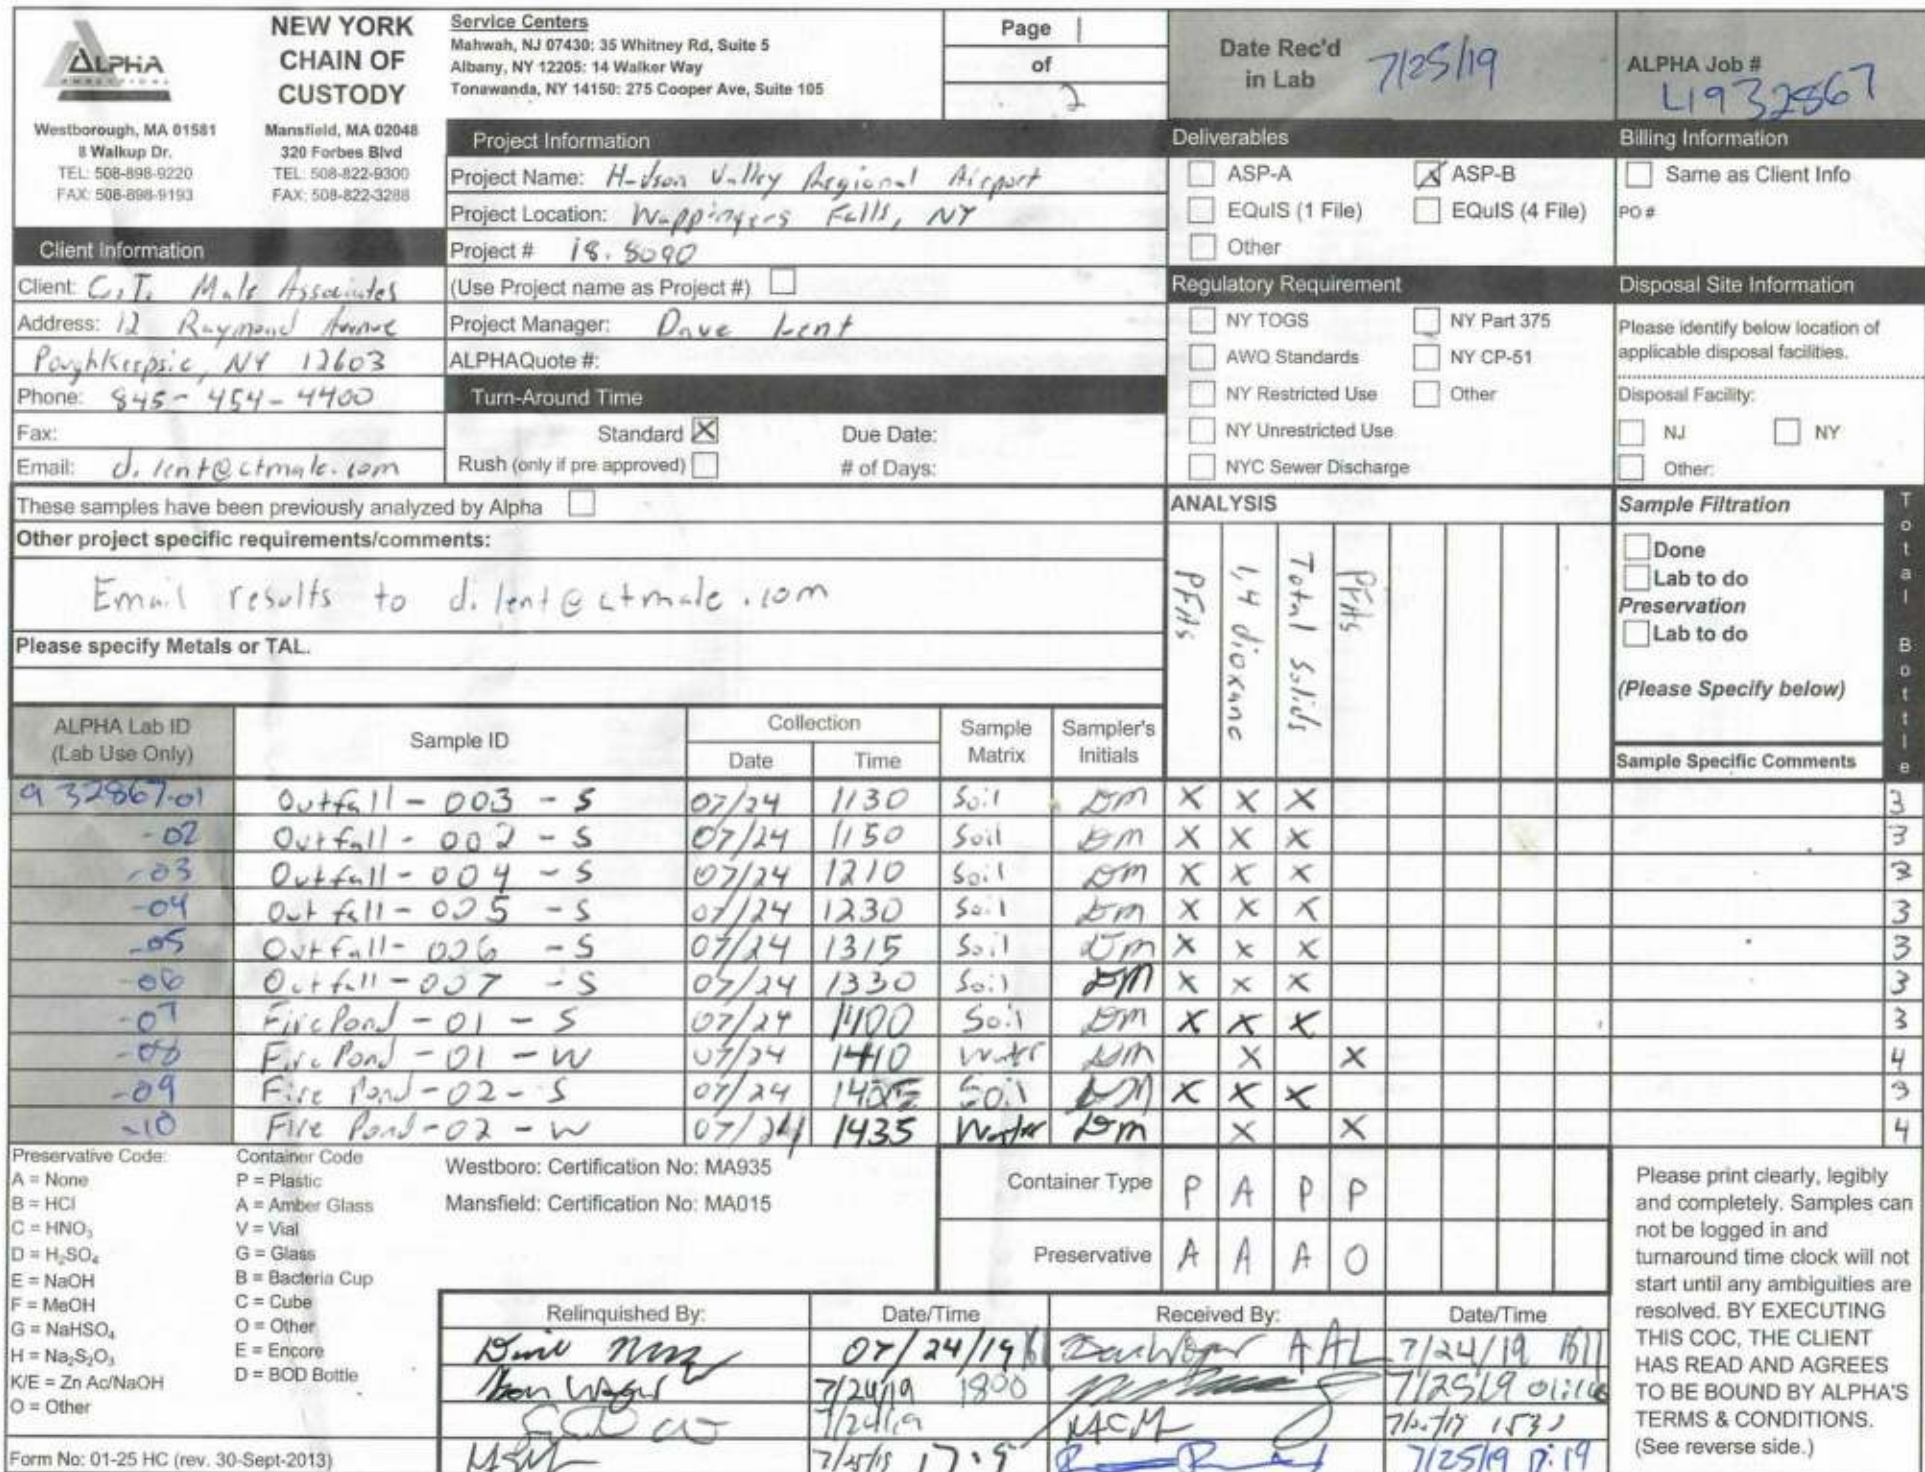 ALPHA
ANALYTICAL
NEW YORK
CHAIN OF
CUSTODY
Westborough, MA 01581
8 Walkup Dr.
TEL: 508-898-9220
FAX: 508-898-9193
Mansfield, MA 02048
320 Forbes Blvd
TEL: 508-822-9300
FAX: 508-822-3288
Service Centers
Mahwah, NJ 07430: 35 Whitney Rd, Suite 5
Albany, NY 12205: 14 Walker Way
Tonawanda, NY 14150: 275 Cooper Ave, Suite 105
Page 1
of
2
Date Rec'd
in Lab 7/25/19
ALPHA Job #
L1932867
Client Information
Client: C.T. Male Associates
Address: 12 Raymond Avenue
Poughkeepsie, NY 12603
Phone: 845-454-4400
Fax:
Email: d.lent@ctmale.com
Project Information
Project Name: Hudson Valley Regional Airport
Project Location: Wappingers Falls, NY
Project # 18.8090
(Use Project name as Project #)
Project Manager: Dave Lent
ALPHAQuote #:
Turn-Around Time
Standard X Due Date:
Rush (only if pre approved) # of Days:
Deliverables
ASP-A X ASP-B
EQuIS (1 File) EQuIS (4 File)
Other
Regulatory Requirement
NY TOGS NY Part 375
AWQ Standards NY CP-51
NY Restricted Use Other
NY Unrestricted Use
NYC Sewer Discharge
Billing Information
Same as Client Info
PO #
Disposal Site Information
Please identify below location of
applicable disposal facilities.
Disposal Facility:
NJ NY
Other:
These samples have been previously analyzed by Alpha
Other project specific requirements/comments:
Email results to d.lent@ctmale.com
Please specify Metals or TAL.
ANALYSIS
PFAS
1,4 dioxane
Total Solids
PFAS
Sample Filtration
Done
Lab to do
Preservation
Lab to do
(Please Specify below)
Sample Specific Comments
Total Bottle
ALPHA Lab ID
(Lab Use Only)
Sample ID
Collection
Date Time
Sample
Matrix
Sampler's
Initials
932867-01 Outfall-003-S 07/24 1130 Soil DM X X X 3
-02 Outfall-002-S 07/24 1150 Soil DM X X X 3
-03 Outfall-004-S 07/24 1210 Soil DM X X X 3
-04 Outfall-005-S 07/24 1230 Soil DM X X X 3
-05 Outfall-006-S 07/24 1315 Soil DM X X X 3
-06 Outfall-007-S 07/24 1330 Soil DM X X X 3
-07 FirePond-01-S 07/24 1400 Soil DM X X X 3
-08 FirePond-01-W 07/24 1410 Water DM X X 4
-09 Fire Pond-02-S 07/24 Soil DM X X X 3
-10 Fire Pond-02-W 07/24 1435 Water DM X X 4
Preservative Code:
A = None
B = HCl
C = HNO₃
D = H₂SO₄
E = NaOH
F = MeOH
G = NaHSO₄
H = Na₂S₂O₃
K/E = Zn Ac/NaOH
O = Other
Container Code
P = Plastic
A = Amber Glass
V = Vial
G = Glass
B = Bacteria Cup
C = Cube
O = Other
E = Encore
D = BOD Bottle
Westboro: Certification No: MA935
Mansfield: Certification No: MA015
Container Type P A P P
Preservative A A A O
Relinquished By: Date/Time Received By: Date/Time
07/24/19 1611 AAL 7/24/19 1611
7/24/19 1800 7/25/19
7/24/19
7/25/19 7/25/19 17:19
Please print clearly, legibly
and completely. Samples can
not be logged in and
turnaround time clock will not
start until any ambiguities are
resolved. BY EXECUTING
THIS COC, THE CLIENT
HAS READ AND AGREES
TO BE BOUND BY ALPHA'S
TERMS & CONDITIONS.
(See reverse side.)
Form No: 01-25 HC (rev. 30-Sept-2013)